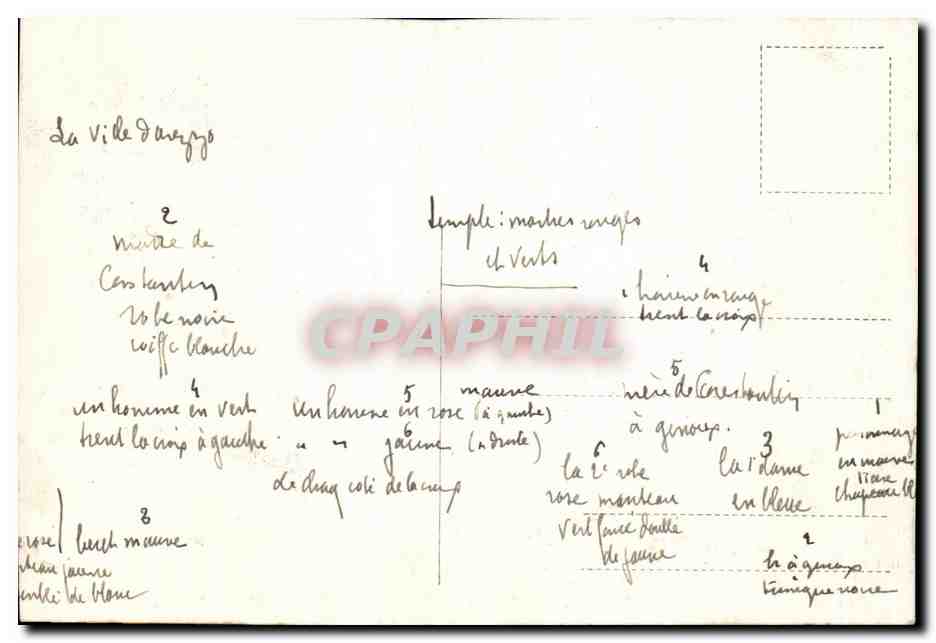 La ville d'arezzo
2
mère de
Constantin
robe noire
coiffe blanche
temple : marbres rouges
et verts
4
homme en rouge
tient la croix
CPAPHIL
4
un homme en vert
tient la croix à gauche
5 mauve
un homme en rose (à gauche)
6
" " jaune (à droite)
de chaq coté de la croix
5
mère de Constantin
à genoux.
6
la 2e robe
rose manteau
vert foncé doublé
de jaune
3
la 1e dame
en bleue
1
personnage
en mauve
chapeau bl
8
rose beret mauve
jaune
de blanc
2
à genoux
tunique noire